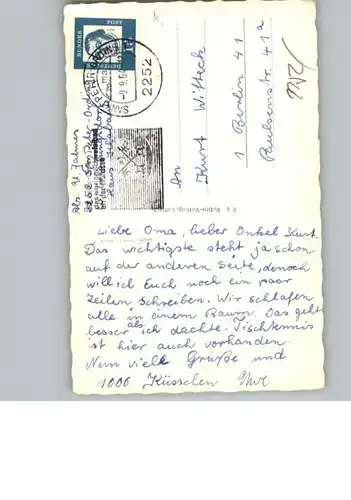 DEUTSCHE BUNDESPOST
15
SANKT PETER-
2252
-9.9.6
Abs. U. Zahner
2252 St. Peter-Ording
Haus
An
Kurt Witteck
1 Berlin 41
Paulsenstr. 41a
Rubin-Verlag
Liebe Oma, lieber Onkel Kurt.
Das wichtigste steht ja schon
auf der anderen Seite, denoch
will ich Euch noch ein paar
Zeilen schreiben. Wir schlafen
alle in einem Raum. Das geht
besser als ich dachte. Tischtennis
ist hier auch vorhanden.
Nun viele Grüße und
1000 Küsschen